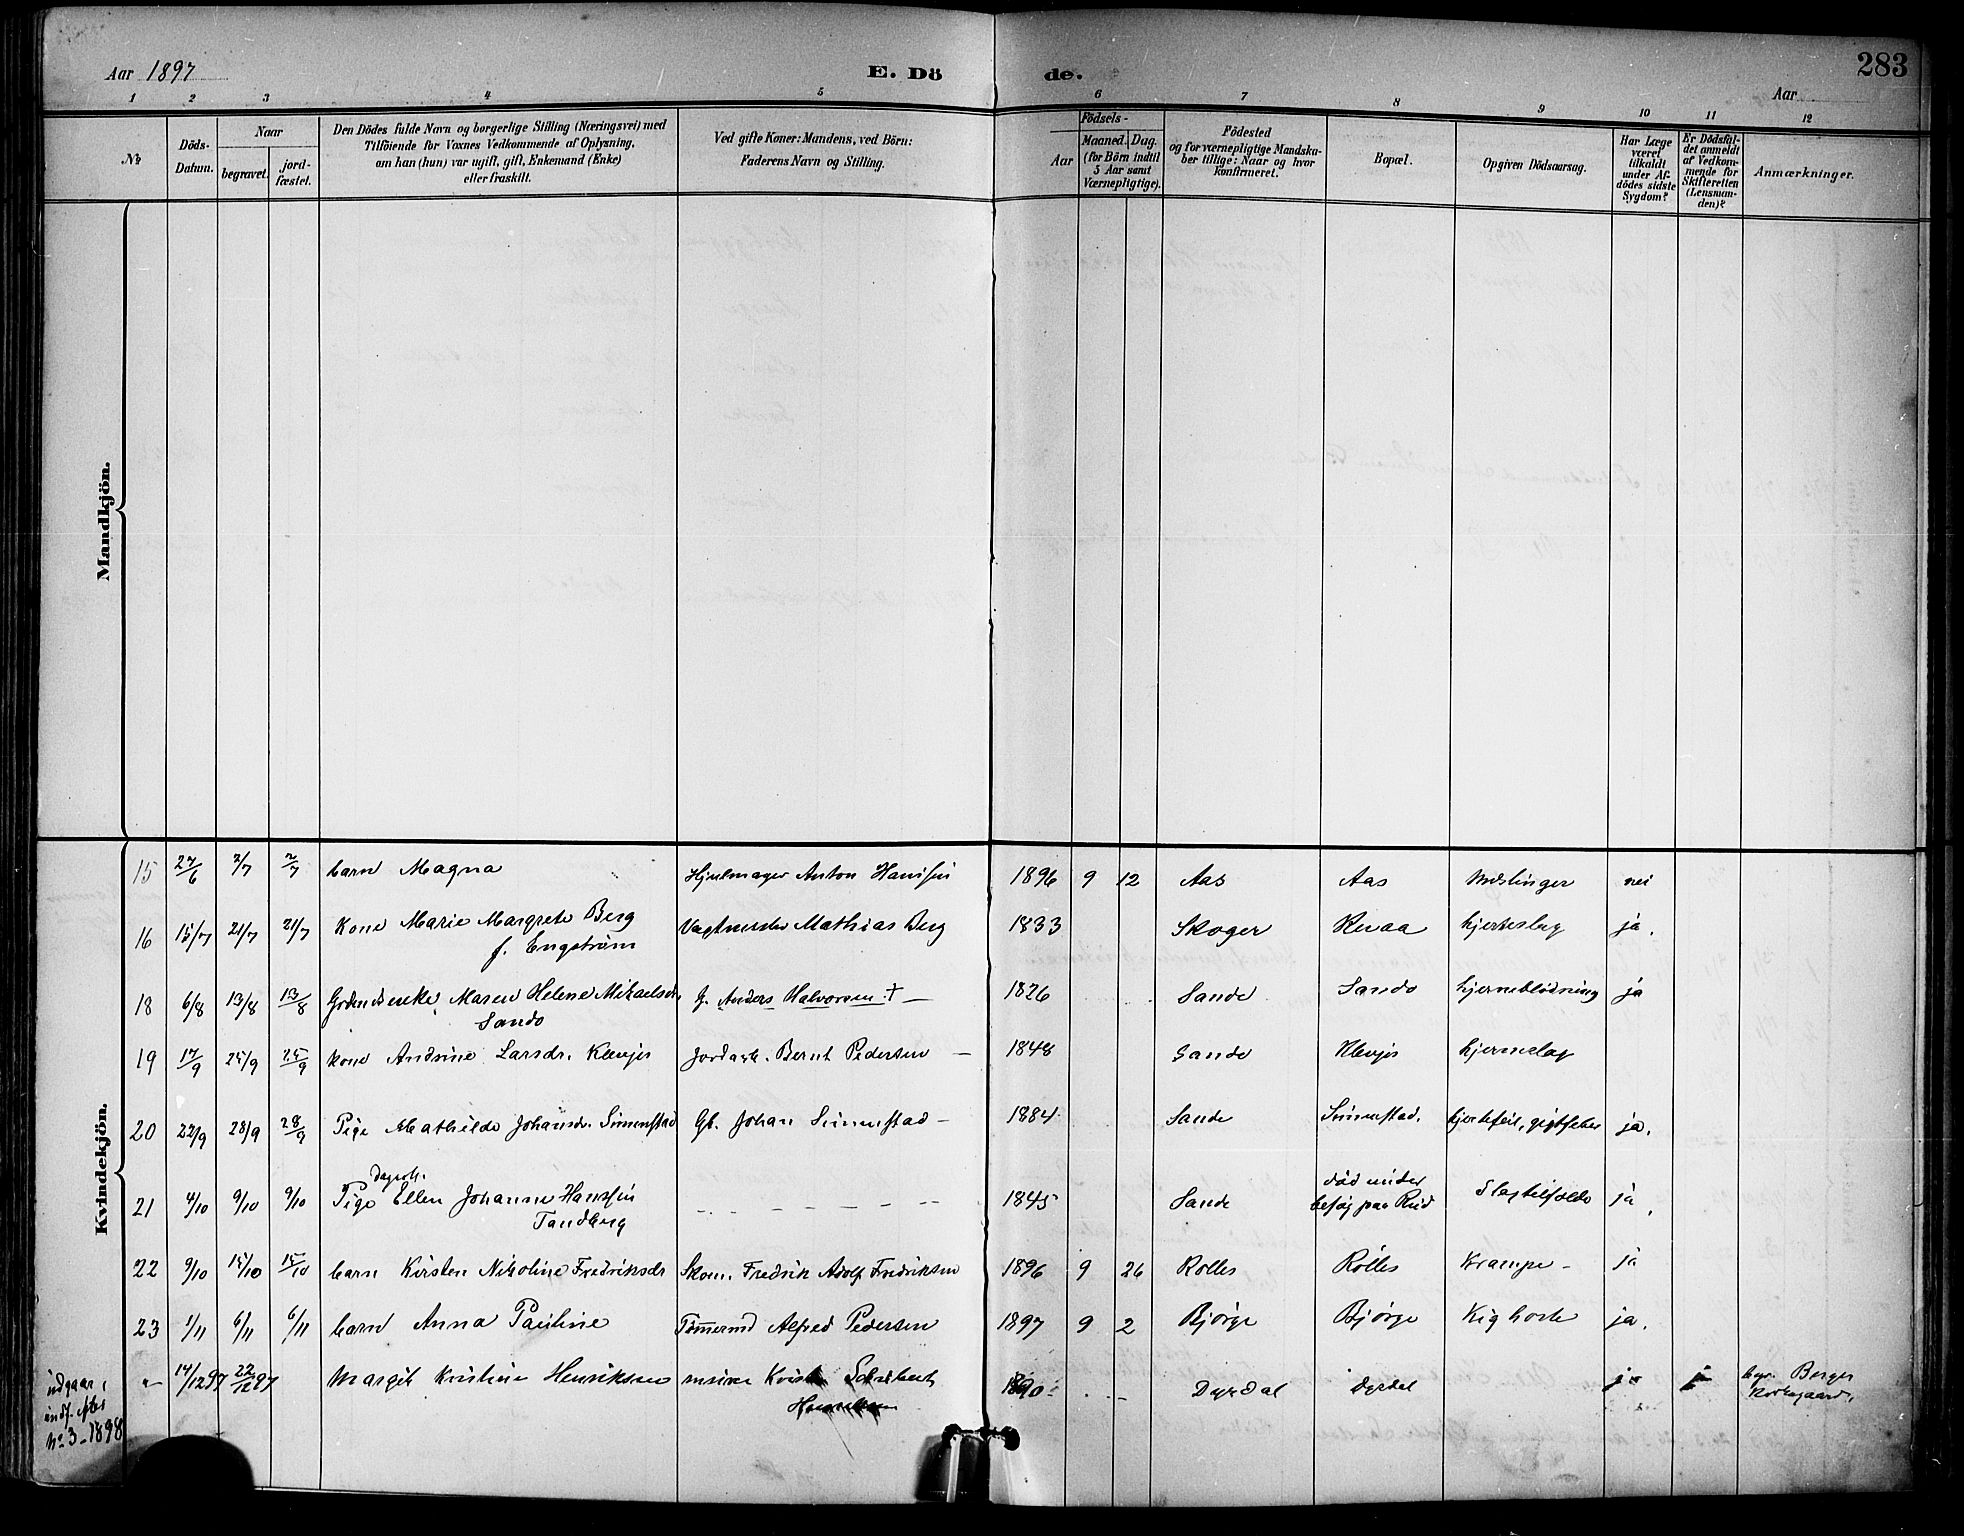 Aar 1897
E. Dö
de.
Aar
283
1 2 3 4 5 6 7 8 9 10 11 12
No
Döds-
Datum.
Naar
begravet.
jord-
fæstet.
Den Dödes fulde Navn og borgerlige Stilling (Næringsvei) med
Tilföiende for Voxnes Vedkommende af Oplysning,
om han (hun) var ugift, gift, Enkemand (Enke)
eller fraskilt.
Ved gifte Koner: Mandens, ved Börn:
Faderens Navn og Stilling.
Födsels-
Aar
Maaned. Dag.
(for Börn indtil
5 Aar samt
Værnepligtige).
Födested
og for værnepligtige Mandska-
ber tillige: Naar og hvor
konfirmeret.
Bopæl.
Opgiven Dödsaarsag.
Har Læge
været
tilkaldt
under Af-
dödes sidste
Sygdom?
Er Dödsfal-
det anmeldt
af Vedkom-
mende for
Skifteretten
(Lensman-
den)?
Anmærkninger.
Mandkjön.
Kvindekjön.
15 27/6 2/7 2/7 barn Magna Hjulmager Anton Hansen 1896 9 12 Aas Aas Mæslinger nei
16 15/7 21/7 21/7 Kone Marie Margrete Berg Mathias Berg 1833 Skoger Revaa hjerteslag ja.
f. Engström
18 6/8 13/8 13/8 Maren Helene Mikaelsdr. G. Anders Halvorsen + — 1826 Sande Sando hjerneblödning ja
Sando
19 17/9 25/9 25/9 kone Andrine Larsdr. Klevjer Bernt Pedersen — 1848 Sande Klevjer
20 22/9 28/9 28/9 Pige Mathilde Johansdr. Sunnstad Gb. Johan Sunnstad — 1884 Sande Sunnstad. hjertefeil, gigtfeber ja.
21 4/10 9/10 9/10 Pige Ellen Johanne Hanssen 1845 Sande död under
besög paa Rud Slagtilfælde ja.
Tandberg
22 9/10 15/10 15/10 barn Kirsten Nikoline Fredriksdr Skom. Fredrik Adolf Fredriksen 1896 9 26 Rölles Rölles Krampe — ja
23 1/11 6/11 6/11 barn Anna Pauline Tömmermd Alfred Pedersen 1897 9 2 Björge Björge Kighoste ja.
" 14/12 97 22/12 97 Margit Kristine Henriksen 1890 Dyrdal Dyrdal ja begr. Berger
Kirkegaard.
indgaar,
indf. efter
No 3 - 1898